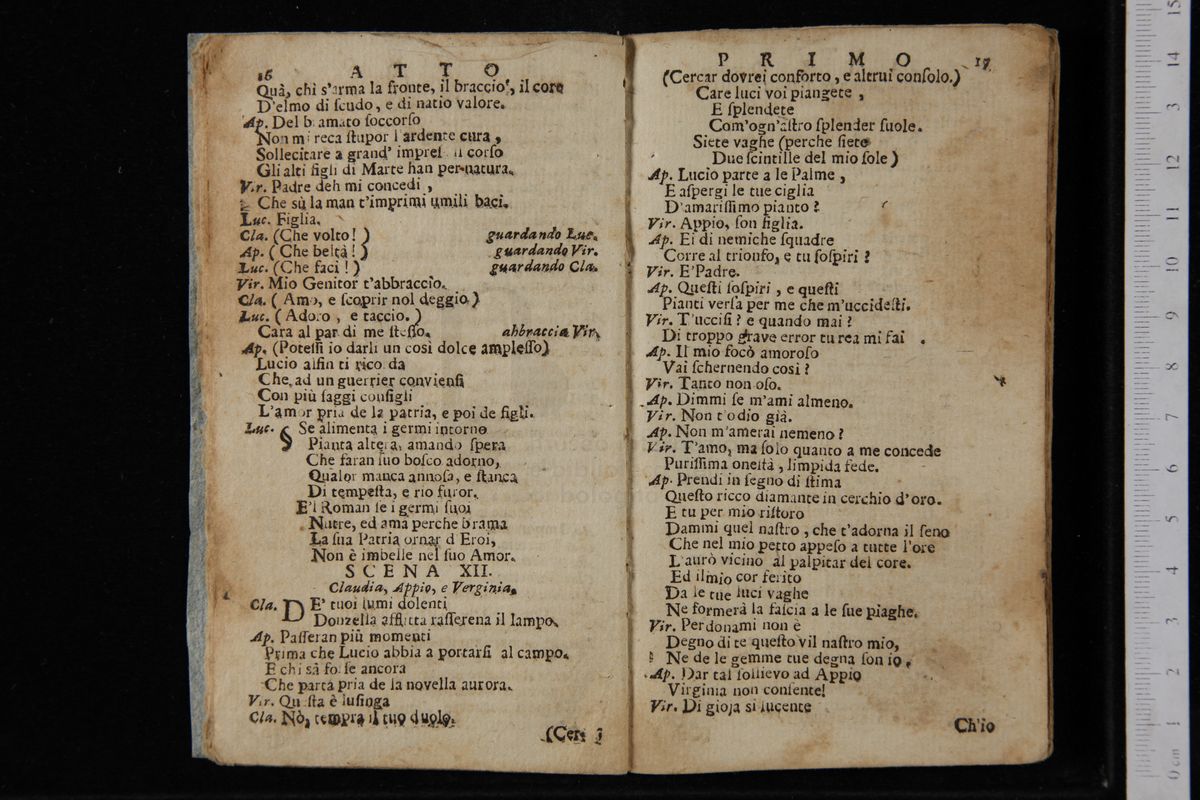 16 ATTO
Quà, chi s'arma la fronte, il braccio, il core
D'elmo di ſcudo, e di natio valore.
Ap. Del bramato ſoccorſo
Non mi reca ſtupor l'ardente cura,
Sollecitare a grand' impreſ il corſo
Gli alti figli di Marte han per natura.
Vir. Padre deh mi concedi,
Che sù la man t'imprimi umili baci.
Luc. Figlia.
Cla. (Che volto!) guardando Luc.
Ap. (Che beltà!) guardando Vir.
Luc. (Che faci!) guardando Cla.
Vir. Mio Genitor t'abbraccio.
Cla. (Amo, e ſcoprir nol deggio)
Luc. (Adoro, e taccio.)
Cara al par di me ſteſſo. abbraccia Vir.
Ap. (Poteſſi io darli un così dolce ampleſſo)
Lucio alfin ti ricorda
Che, ad un guerrier convienſi
Con più ſaggi conſigli
L'amor pria de la patria, e poi de figli.
Luc. Se alimenta i germi intorno
Pianta altera, amando ſpera
Che faran ſuo boſco adorno,
Qualor manca annoſa, e ſtanca
Di tempeſta, e rio furor.
E'l Roman ſe i germi ſuoi
Nutre, ed ama perche brama
La ſua Patria ornar d'Eroi,
Non è imbelle nel ſuo Amor.
SCENA XII.
Claudia, Appio, e Verginia.
Cla. DE' tuoi lumi dolenti
Donzella afflitta raſſerena il lampo.
Ap. Paſſeran più momenti
Prima che Lucio abbia a portarſi al campo.
E chi sà forſe ancora
Che parta pria de la novella aurora.
Vir. Queſta è luſinga
Cla. Nò, tempra il tuo duolo.
(Cer-
PRIMO 17
(Cercar dovrei conforto, e altrui conſolo.)
Care luci voi piangete,
E ſplendete
Com'ogn'aſtro ſplender ſuole.
Siete vaghe (perche ſiete
Due ſcintille del mio ſole)
Ap. Lucio parte a le Palme,
E aſpergi le tue ciglia
D'amariſſimo pianto?
Vir. Appio, ſon figlia.
Ap. Ei di nemiche ſquadre
Corre al trionfo, e tu ſoſpiri?
Vir. E' Padre.
Ap. Queſti ſoſpiri, e queſti
Pianti verſa per me che m'uccideſti.
Vir. T'ucciſi? e quando mai?
Di troppo grave error tu rea mi fai.
Ap. Il mio focò amoroſo
Vai ſchernendo così?
Vir. Tanto non oſo.
Ap. Dimmi ſe m'ami almeno.
Vir. Non t'odio già.
Ap. Non m'amerai nemeno?
Vir. T'amo, ma ſolo quanto a me concede
Puriſſima oneſtà, limpida fede.
Ap. Prendi in ſegno di ſtima
Queſto ricco diamante in cerchio d'oro.
E tu per mio riſtoro
Dammi quel naſtro, che t'adorna il ſeno
Che nel mio petto appeſo a tutte l'ore
L'aurò vicino al palpitar del core.
Ed il mio cor ferito
Da le tue luci vaghe
Ne formerà la faſcia a le ſue piaghe.
Vir. Perdonami non è
Degno di te queſto vil naſtro mio,
Ne de le gemme tue degna ſon io.
Ap. Dar tal ſollievo ad Appio
Virginia non conſente!
Vir. Di gioja sì lucente
Ch'io